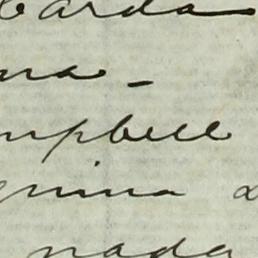 barda
na -
mpbell
mina
nada